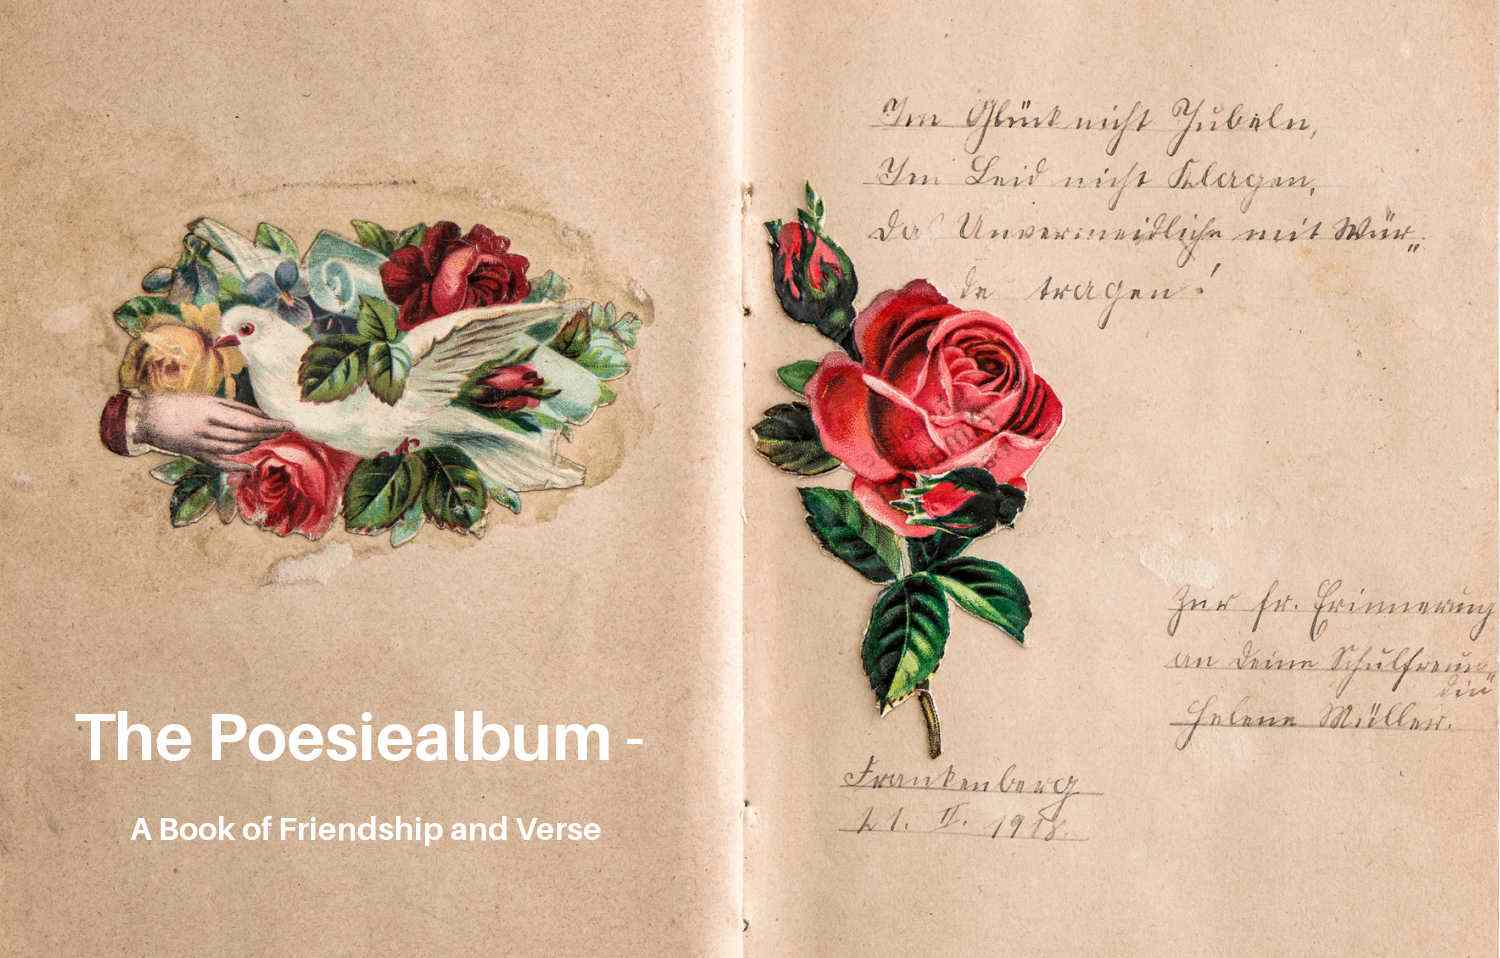 Im Glück nicht Jubeln,
Im Leid nicht Klagen,
Das Unvermeidliche mit Wür„
de tragen!
Zur fr. Erinnerung
an Deine Schulfreun„
din
Helene Müller.
Frankenberg
21. II. 1918.
The Poesiealbum -
A Book of Friendship and Verse